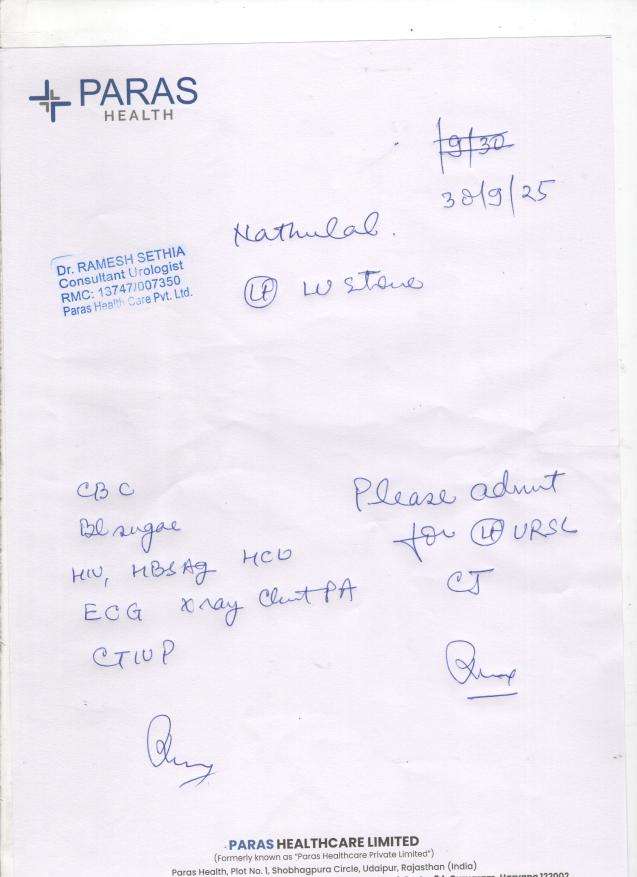 PARAS
HEALTH
30/9/25
Nathulal.
Dr. RAMESH SETHIA
Consultant Urologist
RMC: 13747/007350
Paras Health Care Pvt. Ltd.
Lt LU Stone
CBC
Bl sugar
HIV, HBSAg HCV
ECG X ray Chest PA
CTIVP
Please admit
for Lt URSL
PARAS HEALTHCARE LIMITED
(Formerly known as "Paras Healthcare Private Limited")
Paras Health, Plot No. 1, Shobhagpura Circle, Udaipur, Rajasthan (India)